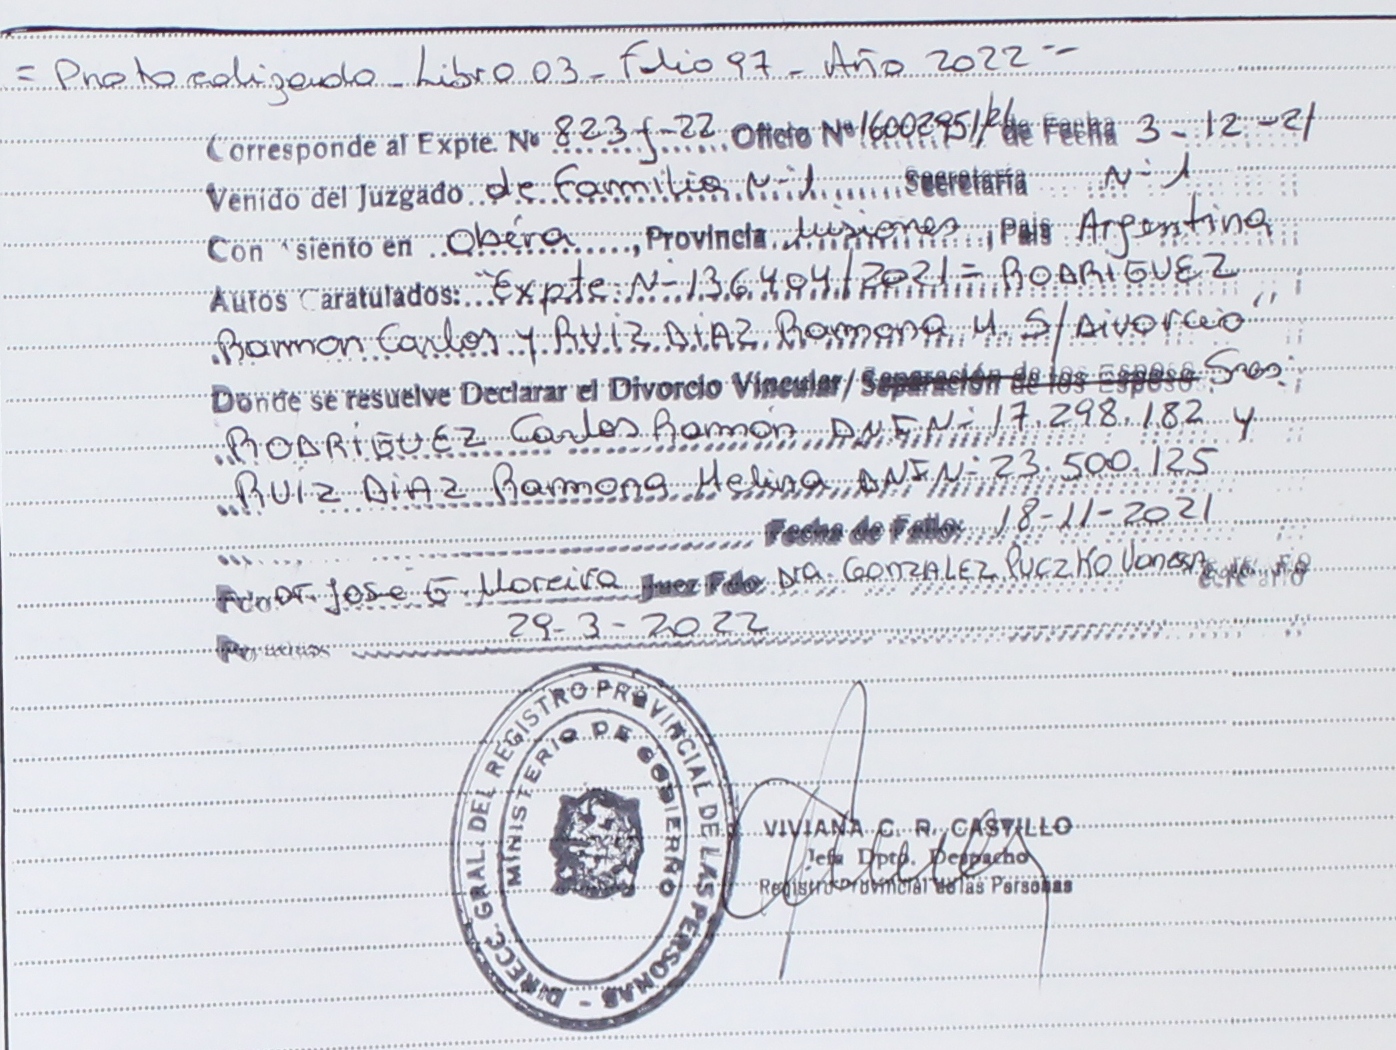 = Protocolizado - Libro 03 - Folio 97 - Año 2022 =
Corresponde al Expte. Nº 823-f-22 Oficio Nº 16002951/21 de Fecha 3-12-21
Venido del Juzgado de Familia N-1 Secretaría N-1
Con asiento en Oberá, Provincia Misiones, País Argentina
Autos Caratulados: "Expte. N-136404/2021 = RODRIGUEZ
Ramon Carlos y RUIZ DIAZ Ramona H. S/Divorcio"
Donde se resuelve Declarar el Divorcio Vincular/ Separación de los Esposo Sres.
RODRIGUEZ Carlos Ramón DNI N- 17.298.182 y
RUIZ DIAZ Ramona Helina DNI N- 23.500.125
Fecha de Fallo: 18-11-2021
Fdo Dr. Jose G. Moreira Juez Fdo Dra. GONZALEZ PUCZKO Vanesa
29-3-2022
DIRECC. GRAL. DEL REGISTRO PROVINCIAL DE LAS PERSONAS -
MINISTERIO DE GOBIERNO
VIVIANA C. R. CASTILLO
Jefa Dpto. Despacho
Registro Provincial de las Personas